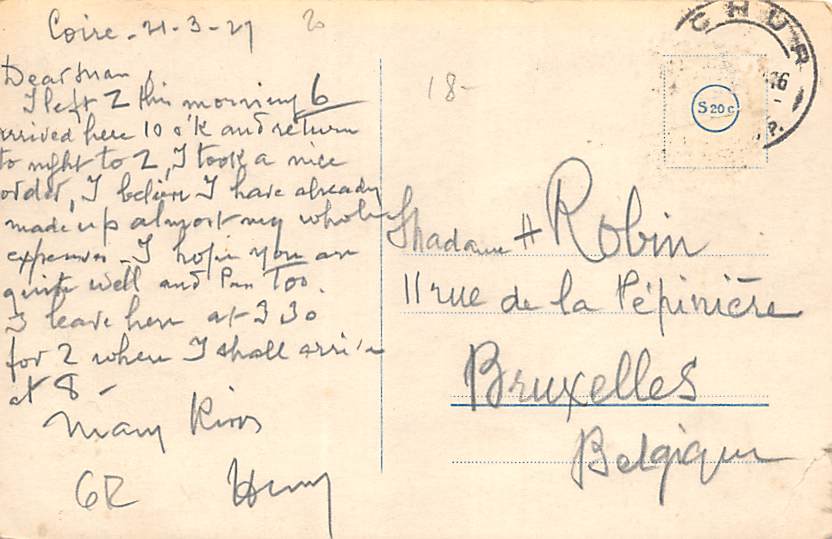 Coire - 21-3-29
20
Dear man,
I left Z this morning 6
arrived here 10 o'k and return
to night to Z, I took a nice
order, I believe I have already
made up almost my whole
expenses - I hope you are
quite well and Pen Too.
I leave here at 3 30
for Z where I shall arrive
at 8 -
Many Kisses
Henry
18-
CHUR
16
S 20 c
Madame H Robin
11 rue de la Pépinière
Bruxelles
Belgique